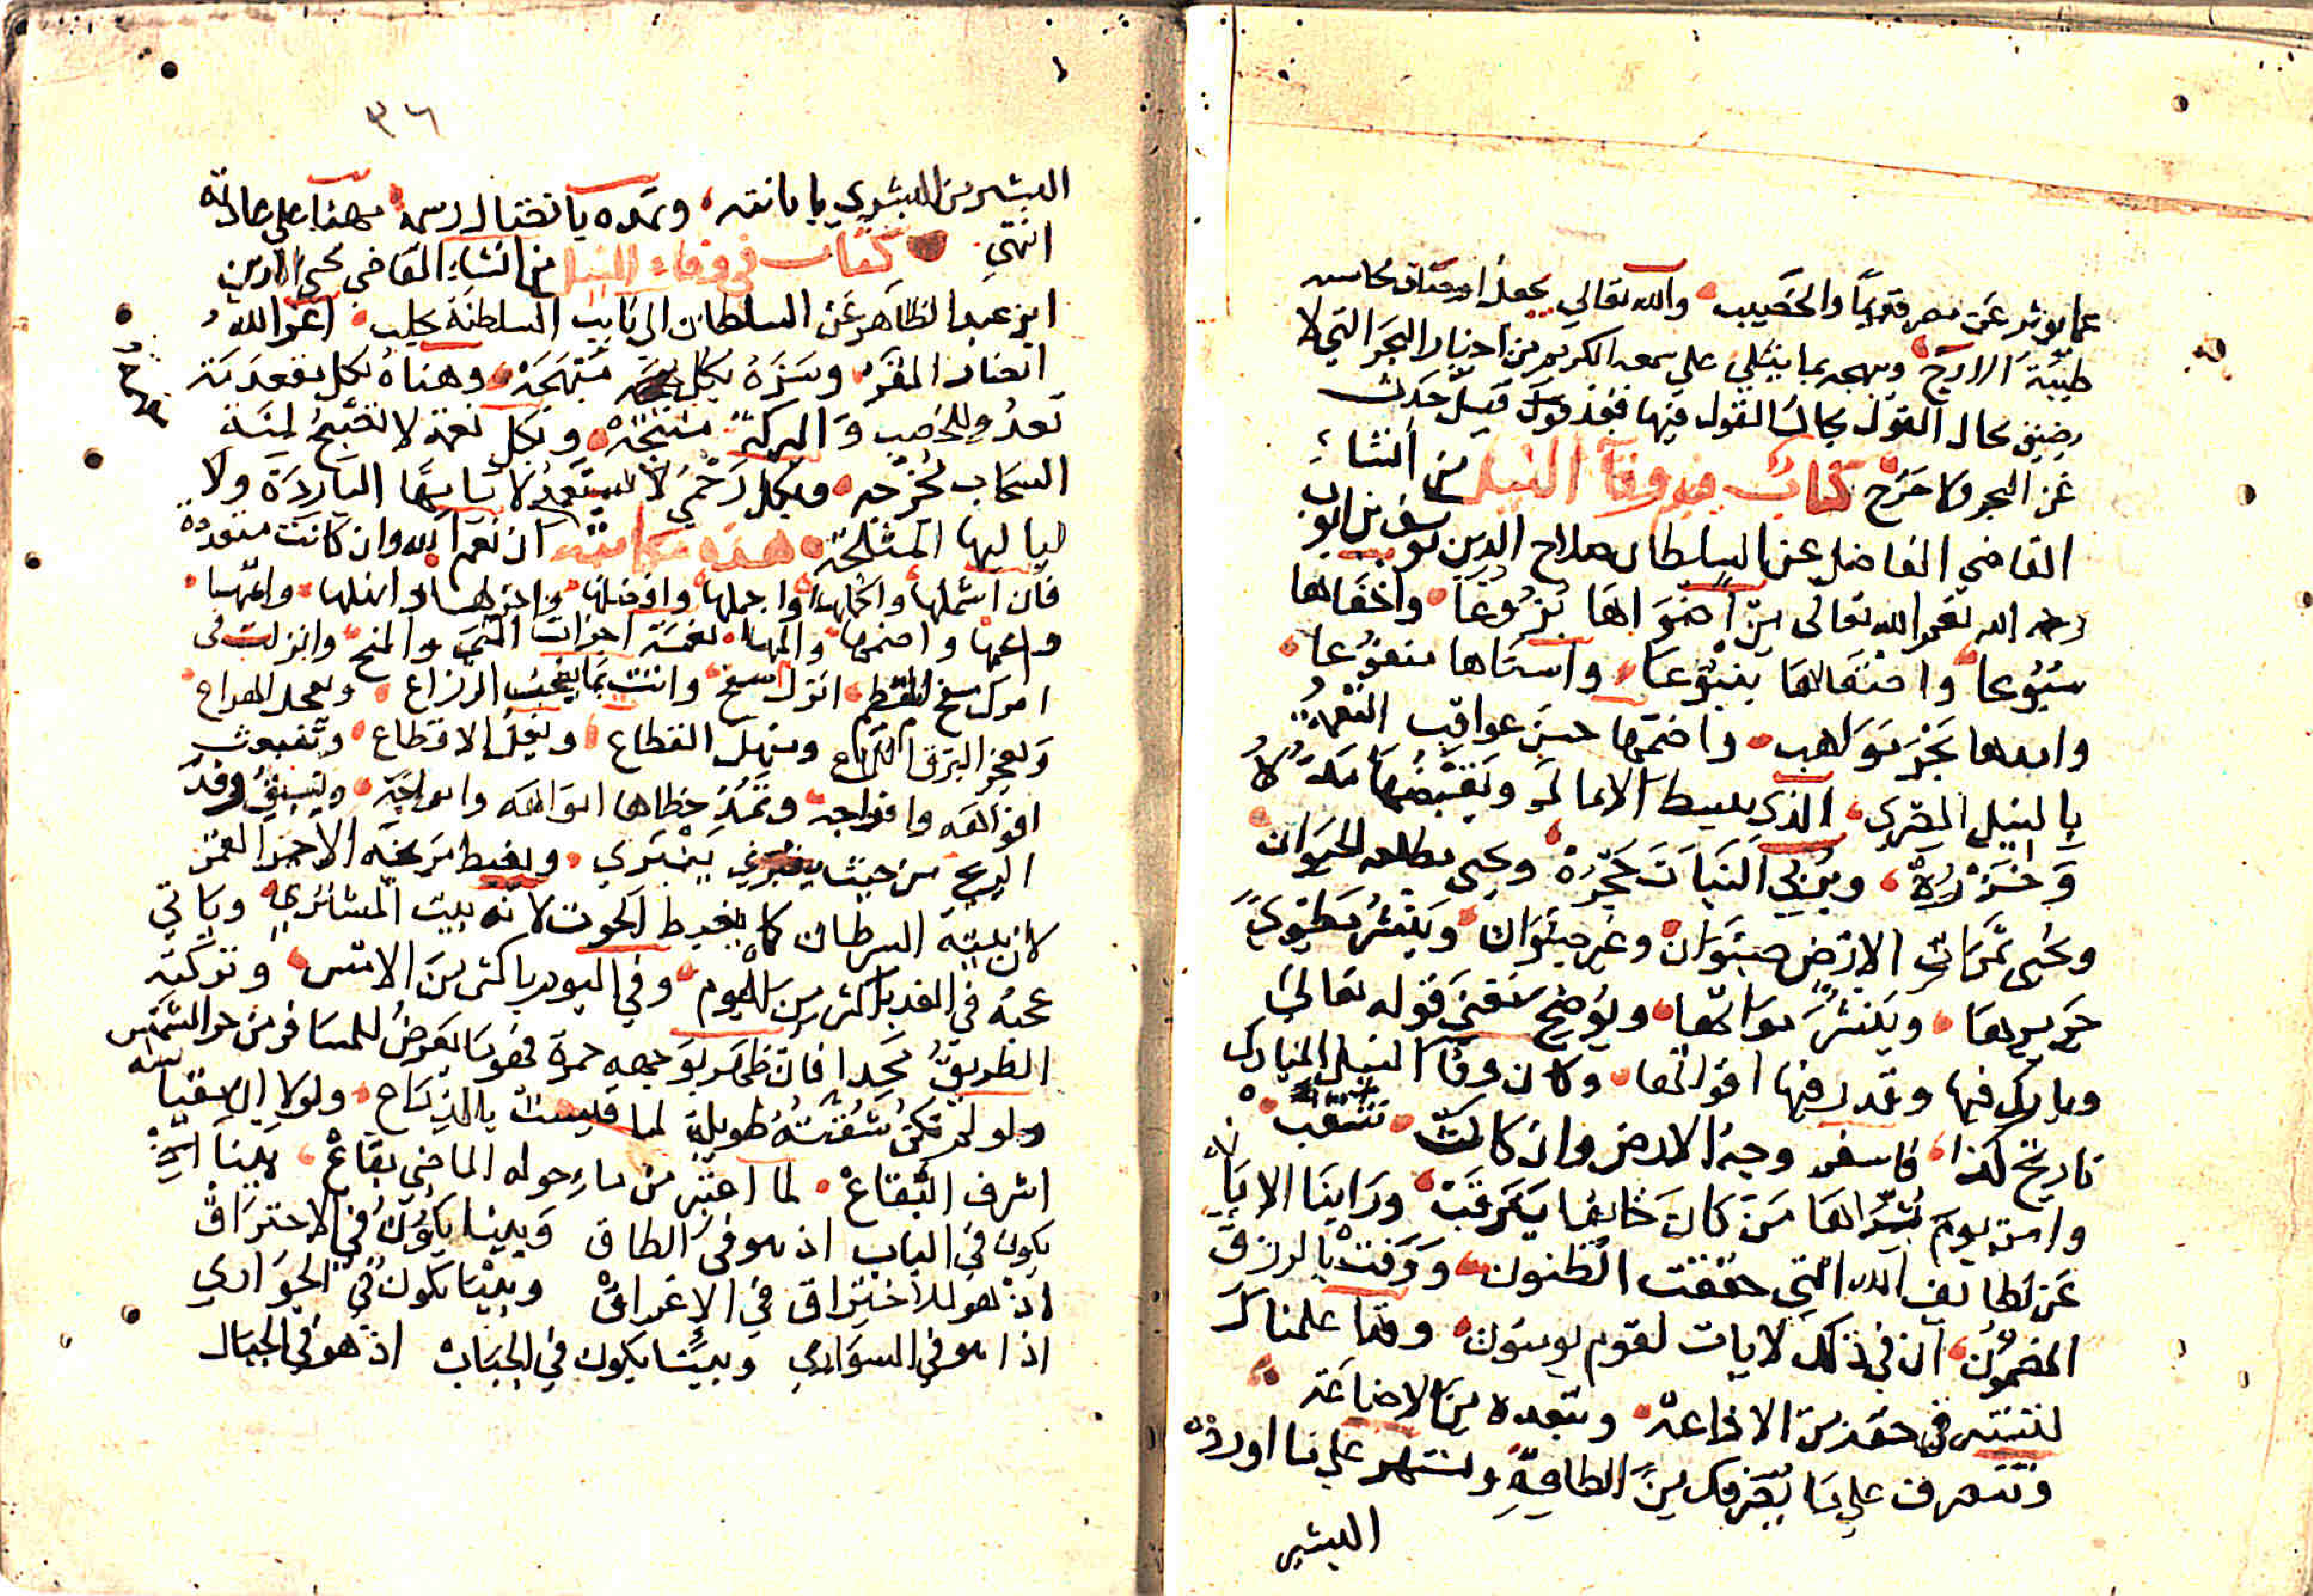 عما يوثر عن مصر قديما والخصيب والله تعالى يجعل اوصاف محاسنه
طيبة الارج ويبهجه بما يتلى على سمعه الكريم من اخبار البحر التي لا
يضيق مجال القول بحال القول فيها فقد قيل حدث
عن البحر ولا حرج كتاب في وفاء النيل من انشاء
القاضي الفاضل عن السلطان صلاح الدين يوسف بن ايوب
رحمه الله نعم الله تعالى من اضواها بزوغا واضفاها
سبوغا واصفاها ينبوعا واسناها منفوعا
وامدها بحر مواهب واضمنها حسن عواقب النعمة
بالنيل المصري الذي يبسط الامال ويقبضها مده
وجزره ويربي النبات حجره ويحيي مطلعه الحيوان
ويجني ثمرات الارض صنوان وغير صنوان وينشر مطوي
حريرها وينشر مواتها ويوضح معنى قوله تعالى
وبارك فيها وقدر فيها اقواتها وكان وفاء النيل المبارك
تاريخ كذا فاسفر وجه الارض وان كانت تنقب
وامن يوم بشراها من كان خائفا يترقب وراينا الابانة
عن لطايف الله التي حققت الظنون ووفت بالرزق
المضمون ان في ذلك لايات لقوم يومنون وقد اعلمناك
لتستوفي حقه من الاذاعة وتبعده من الاضاعة
وتتصرف على ما نصرفك من الطاعة وتشهر على ما اورده
البشير
٣٦
البشير من البشرى بابانته وتمده بايصال رسمه مهنا على عادته
انتهى كتاب في وفاء النيل من انشاء القاضي محيي الدين
ابن عبد الظاهر عن السلطان الى نايب السلطنة بحلب اعز الله
انصار المقر وسره بكل مبهجة وهناه بكل مقدمة
تغدو للخصب والبركة منتجة وبكل نعمة لا تصبح لمنة
السحاب محوجة وبكل رحمى لا يستعد لايامها الباردة ولا
لياليها المثلجة هذه مكاتبة ان نعم الله وان كانت متعددة
فان اشملها واكملها واجملها وافضلها واجزلها وانهلها واتمها
واعمها واضمها والمها نعمة اجزلت المن والمنح وانزلت في
ابرك سفح المقطم اغزر سفح واتت بما يعجب الزراع ويعجل الهراع
ويعجز البرق اللماع ويغل القطاع ويغل الاقطاع وتنبعث
افواهه وافواجه وتمد خطاها امواهه وامواجه ويسبق وفد
الريح من حيث ينبري ويغبط مريخه الاحمر القمر
لان بيته السرطان كما يغبط الحوت لانه بيت المشتري وياتي
عجبه في الغد باكثر من اليوم وفي اليوم باكثر من الامس وتركبه
الطريق مجدا فان ظهر بوجهه حمرة فهو ما يعرض للمسافر من حر الشمس
ولو لم تكن شقته طويلة لما قيست بالذراع ولولا ان مقياسه
اشرف البقاع لما اعتبر من ماء حوله الماضي بقاع بينا
يكون في الباب اذ هو في الطاق وبينا يكون في الاحتراق
اذ هو للاختراق في الاغراق وبينا يكون في الجواري
اذا هو في السواري وبينا يكون في الجباب اذ هو في الجبال